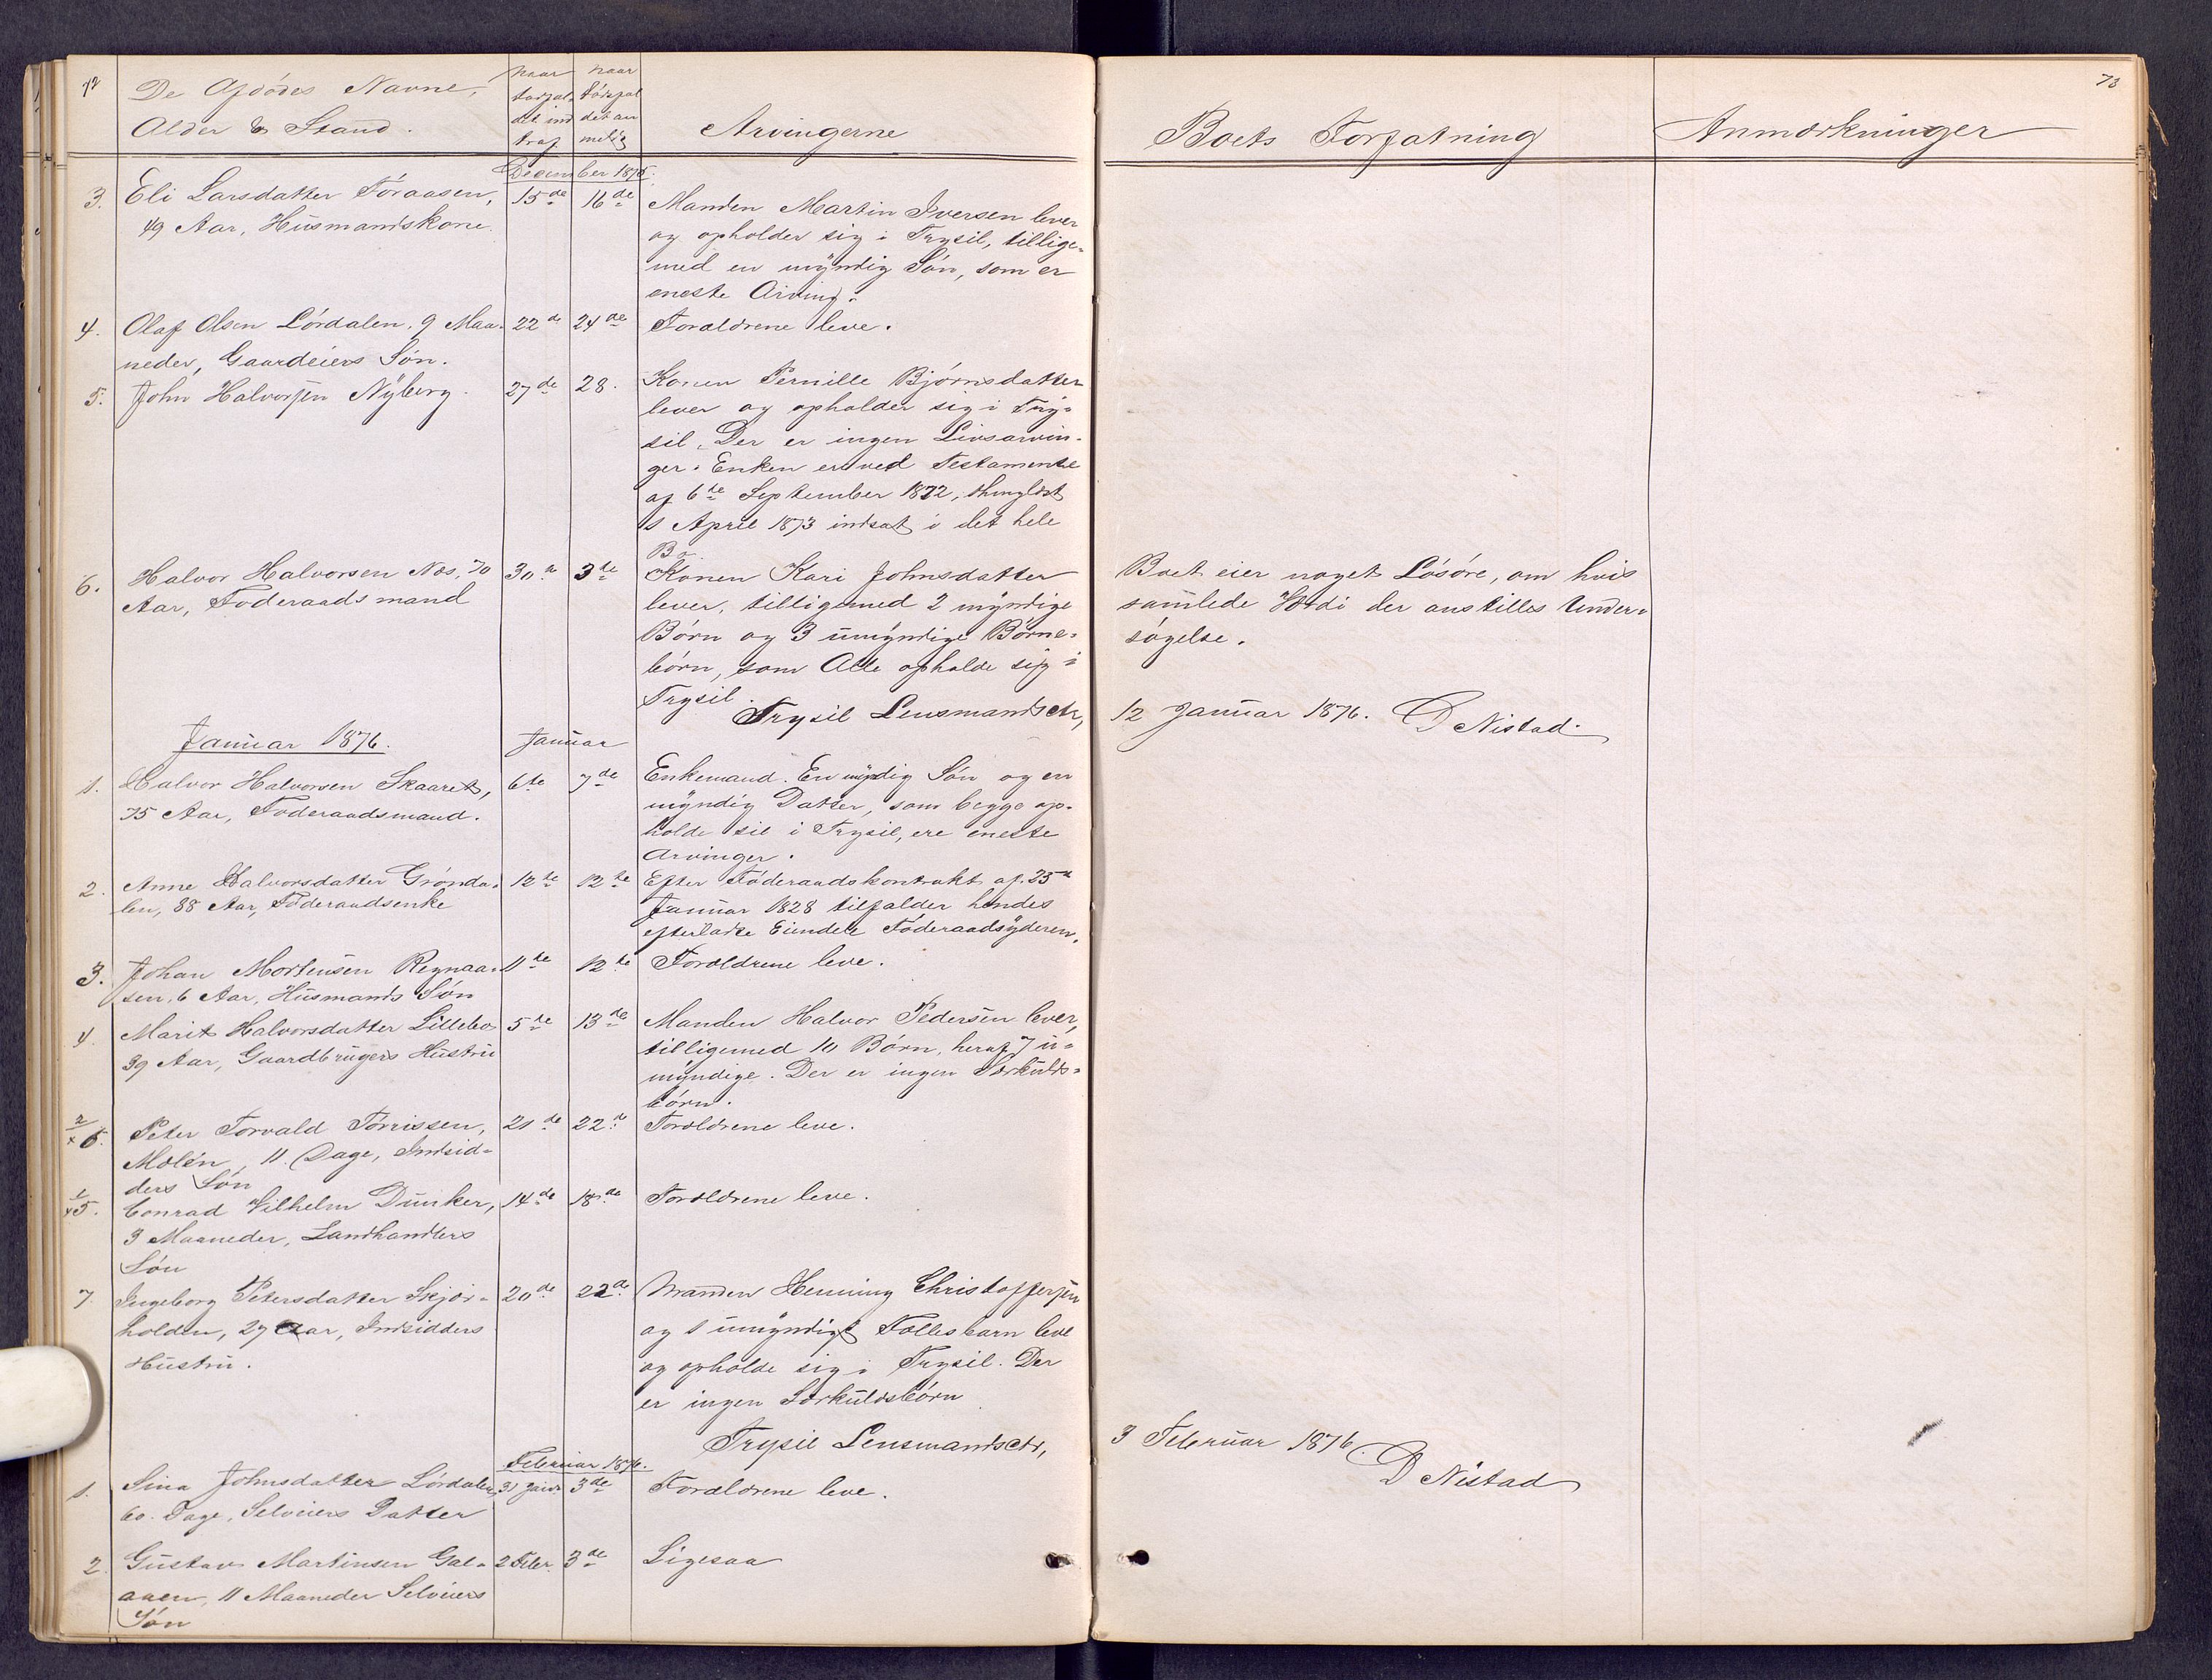 De Afdödes Navne,
Alder & Stand.
naar
dödsfal
det ind
traf
naar
Dödsfal
det an
meldt
Arvingerne
Boets Forfatning
Anmærkninger
73
December 1875.
3. Eli Larsdatter Föraasen,
49 Aar, Husmandskone.
15de 16de
Manden Martin Iversen lever
og opholder sig i Trysil, tillige-
med en myndig Sön, som er
eneste Arving.
4. Olaf Olsen Lördalen, 9 Maa-
neder, Gaardeiers Sön.
22de 24de Forældrene leve.
5. John Halvorsen Nyberg.
27de 28.
Konen Pernille Bjørnsdatter
lever og opholder sig i Try-
sil. Der er ingen Livsarvin-
ger. Enken er ved Testamente
af 6te September 1872, thinglæst
1 April 1873 indsat i det hele
Bo.
6. Halvor Halvorsen Næs, 70
Aar, Föderaadsmand
30te 3te
Konen Kari Johnsdatter
lever, tilligemed 2 myndige
Börn og 3 umyndige Börne-
börn, som Alle opholde sig i
Trysil.
Boet eier noget Lösöre, om hvis
samlede Værdi der anstilles Under-
sögelse.
Trysil Lensmandsctr, 12 Januar 1876. D Nistad.
Januar 1876. Januar
1. Halvor Halvorsen Skaaret,
75 Aar, Föderaadsmand.
6te 7de
Enkemand. En myndig Sön og en
myndig Datter, som begge op-
holde sil i Trysil, ere eneste
Arvinger.
2. Anne Halvorsdatter Grönda-
len, 88 Aar, Föderaadsenke
12te 12te
Efter Föderaadskontrakt af 25de
Januar 1828 tilfalder hendes
efterladte Eiendele Föderaadsyderen.
3. Johan Mortensen Regnaa-
sen, 6 Aar, Husmands Sön
11te 12te Forældrene leve.
4. Marit Halvorsdatter Lillebo
39 Aar, Gaardbrugers Hustru
5te 13de
Manden Halvor Pedersen lever,
tilligemed 10 Börn, heraf 7 u-
myndige. Der er ingen Særkulds-
börn.
2/x 6. Peter Torvald Törrissen,
Molén, 11. Dage, Indsid-
ders Sön
21de 22de Forældrene leve.
1/x 5. Conrad Vilhelm Dunker,
3 Maaneder, Landhandlers
Sön
14de 18de Forældrene leve.
7. Ingeborg Petersdatter Skjær-
holden, 27 Aar, Indsidders
Hustru.
20de 22de
Manden Henning Christoffersen
og 1 umyndigt Fællesbarn leve
og opholde sig i Trysil. Der
er ingen Særkuldsbörn
Trysil Lensmandsctr, 3 Februar 1876. D Nistad
Februar 1876.
1. Sina Johnsdatter Lördalen,
60. Dage, Selveiers Datter
31 Janr. 3de Forældrene leve.
2. Gustav Martinsen Gal-
aaen, 11 Maaneder Selveiers
Sön
2 Febr. 3de Ligesaa